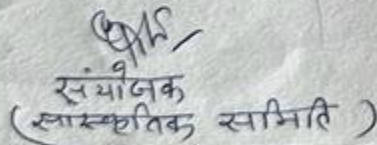 संयोजक
(सांस्कृतिक समिति)